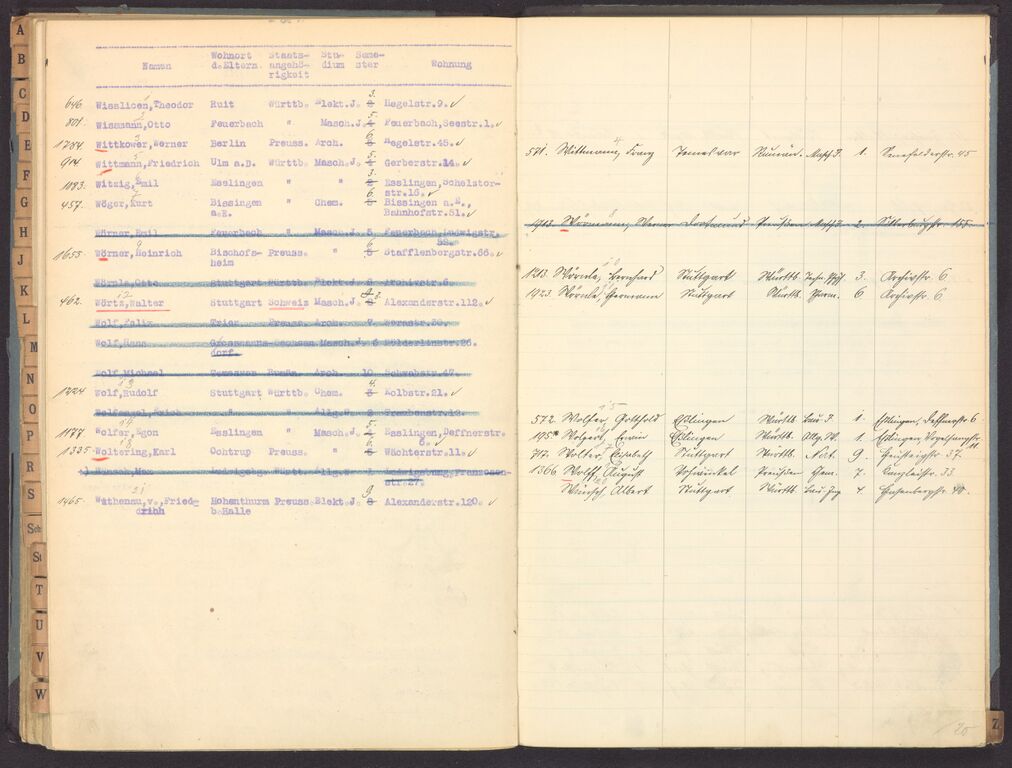 A
B
C
D
E
F
G
H
J
K
L
M
N
O
P
R
S
Sch
St
T
U
V
W
Z
Namen Wohnort d.Eltern. Staats-angehö-rigkeit Stu-dium Seme-ster Wohnung
3.
646 Wisslicen, Theodor Ruit Württb. Elekt.J. 2 Hegelstr.9.
801. Wissmann, Otto Feuerbach " Masch.J. 4 Feuerbach, Seestr.1.
1284 Wittkower, Werner Berlin Preuss. Arch. 5 Hegelstr.45.
914 Wittmann, Friedrich Ulm a.D. Württb. Masch.J. 4 Gerberstr.14.
1083. Witzig, Emil Esslingen " " 2 Esslingen, Schelztor-
str.16.
457. Wöger, Kurt Bissingen " Chem. 5 Bissingen a.E.,
a.E. Bahnhofstr.51.
Wörner, Emil Feuerbach " Masch.J. 5 Feuerbach, Ludwigstr.
1653. Wörner, Heinrich Bischofs- Preuss. " 5 Stafflenbergstr.66.
heim
Wörnle, Otto Stuttgart Württb. Elekt.J. 8 Archivstr.6.
462. Wörtz, Walter Stuttgart Schweiz Masch.J. Alexanderstr.112.
Wolf, Felix Trier Preuss. Arch. 7 Wernstr.30.
Wolf, Hans Grossmanns- Sachsen Masch.J. 6 Hölderlinstr.26.
dorf.
Wolf, Michael Temesvar Rumän. Arch. 10 Schwabstr.47.
1224 Wolf, Rudolf Stuttgart Württb. Chem. 3 Kolbstr.21.
Wolfangel, Erich " " Allg.W. 2 Traubenstr.12.
1177 Wolfer, Egon Esslingen " Masch.J. 4 Esslingen, Deffnerstr.
6.
1335 Woltering, Karl Ochtrup Preuss. " 5 Wächterstr.11.
Wünsch, Max Ludwigsbg. Württ. Allg.W. 1 Ludwigsburg, Franzosen-
str.27.
9
1465 Wuthenau, v., Fried- Hohenthurm Preuss. Elekt.J. 8 Alexanderstr.120.
drich b.Halle
571. Wittmann, Franz Temesvar Rumän. Masch J. 1. Senefelderstr. 45
1913. Wörmann, Werner Dortmund Preußen Masch J. 2. Silberburgstr. 155.
1213. Wörnle, Bernhard Stuttgart Württb. Techn. Phys. 3. Archivstr. 6
1923. Wörnle, Hermann Stuttgart Württb. Pharm. 6 Archivstr. 6
572. Wolfer, Gottfold Eßlingen Württb. Bau J. 1. Eßlingen, Deffnerstr. 6
Wolpert, Erwin Eßlingen Württb. Allg. W. 1. Eßlingen, Vogelsangstr.
717. Wolter, Elisabeth Stuttgart Württb. Arch. 9. 37.
1366. Wolff, August Vohwinkel Preußen Chem. 7. Kanzleistr. 33.
Wünsch, Albert Stuttgart Württb. Bau-Ing 4 Hasenbergstr. 40.
20